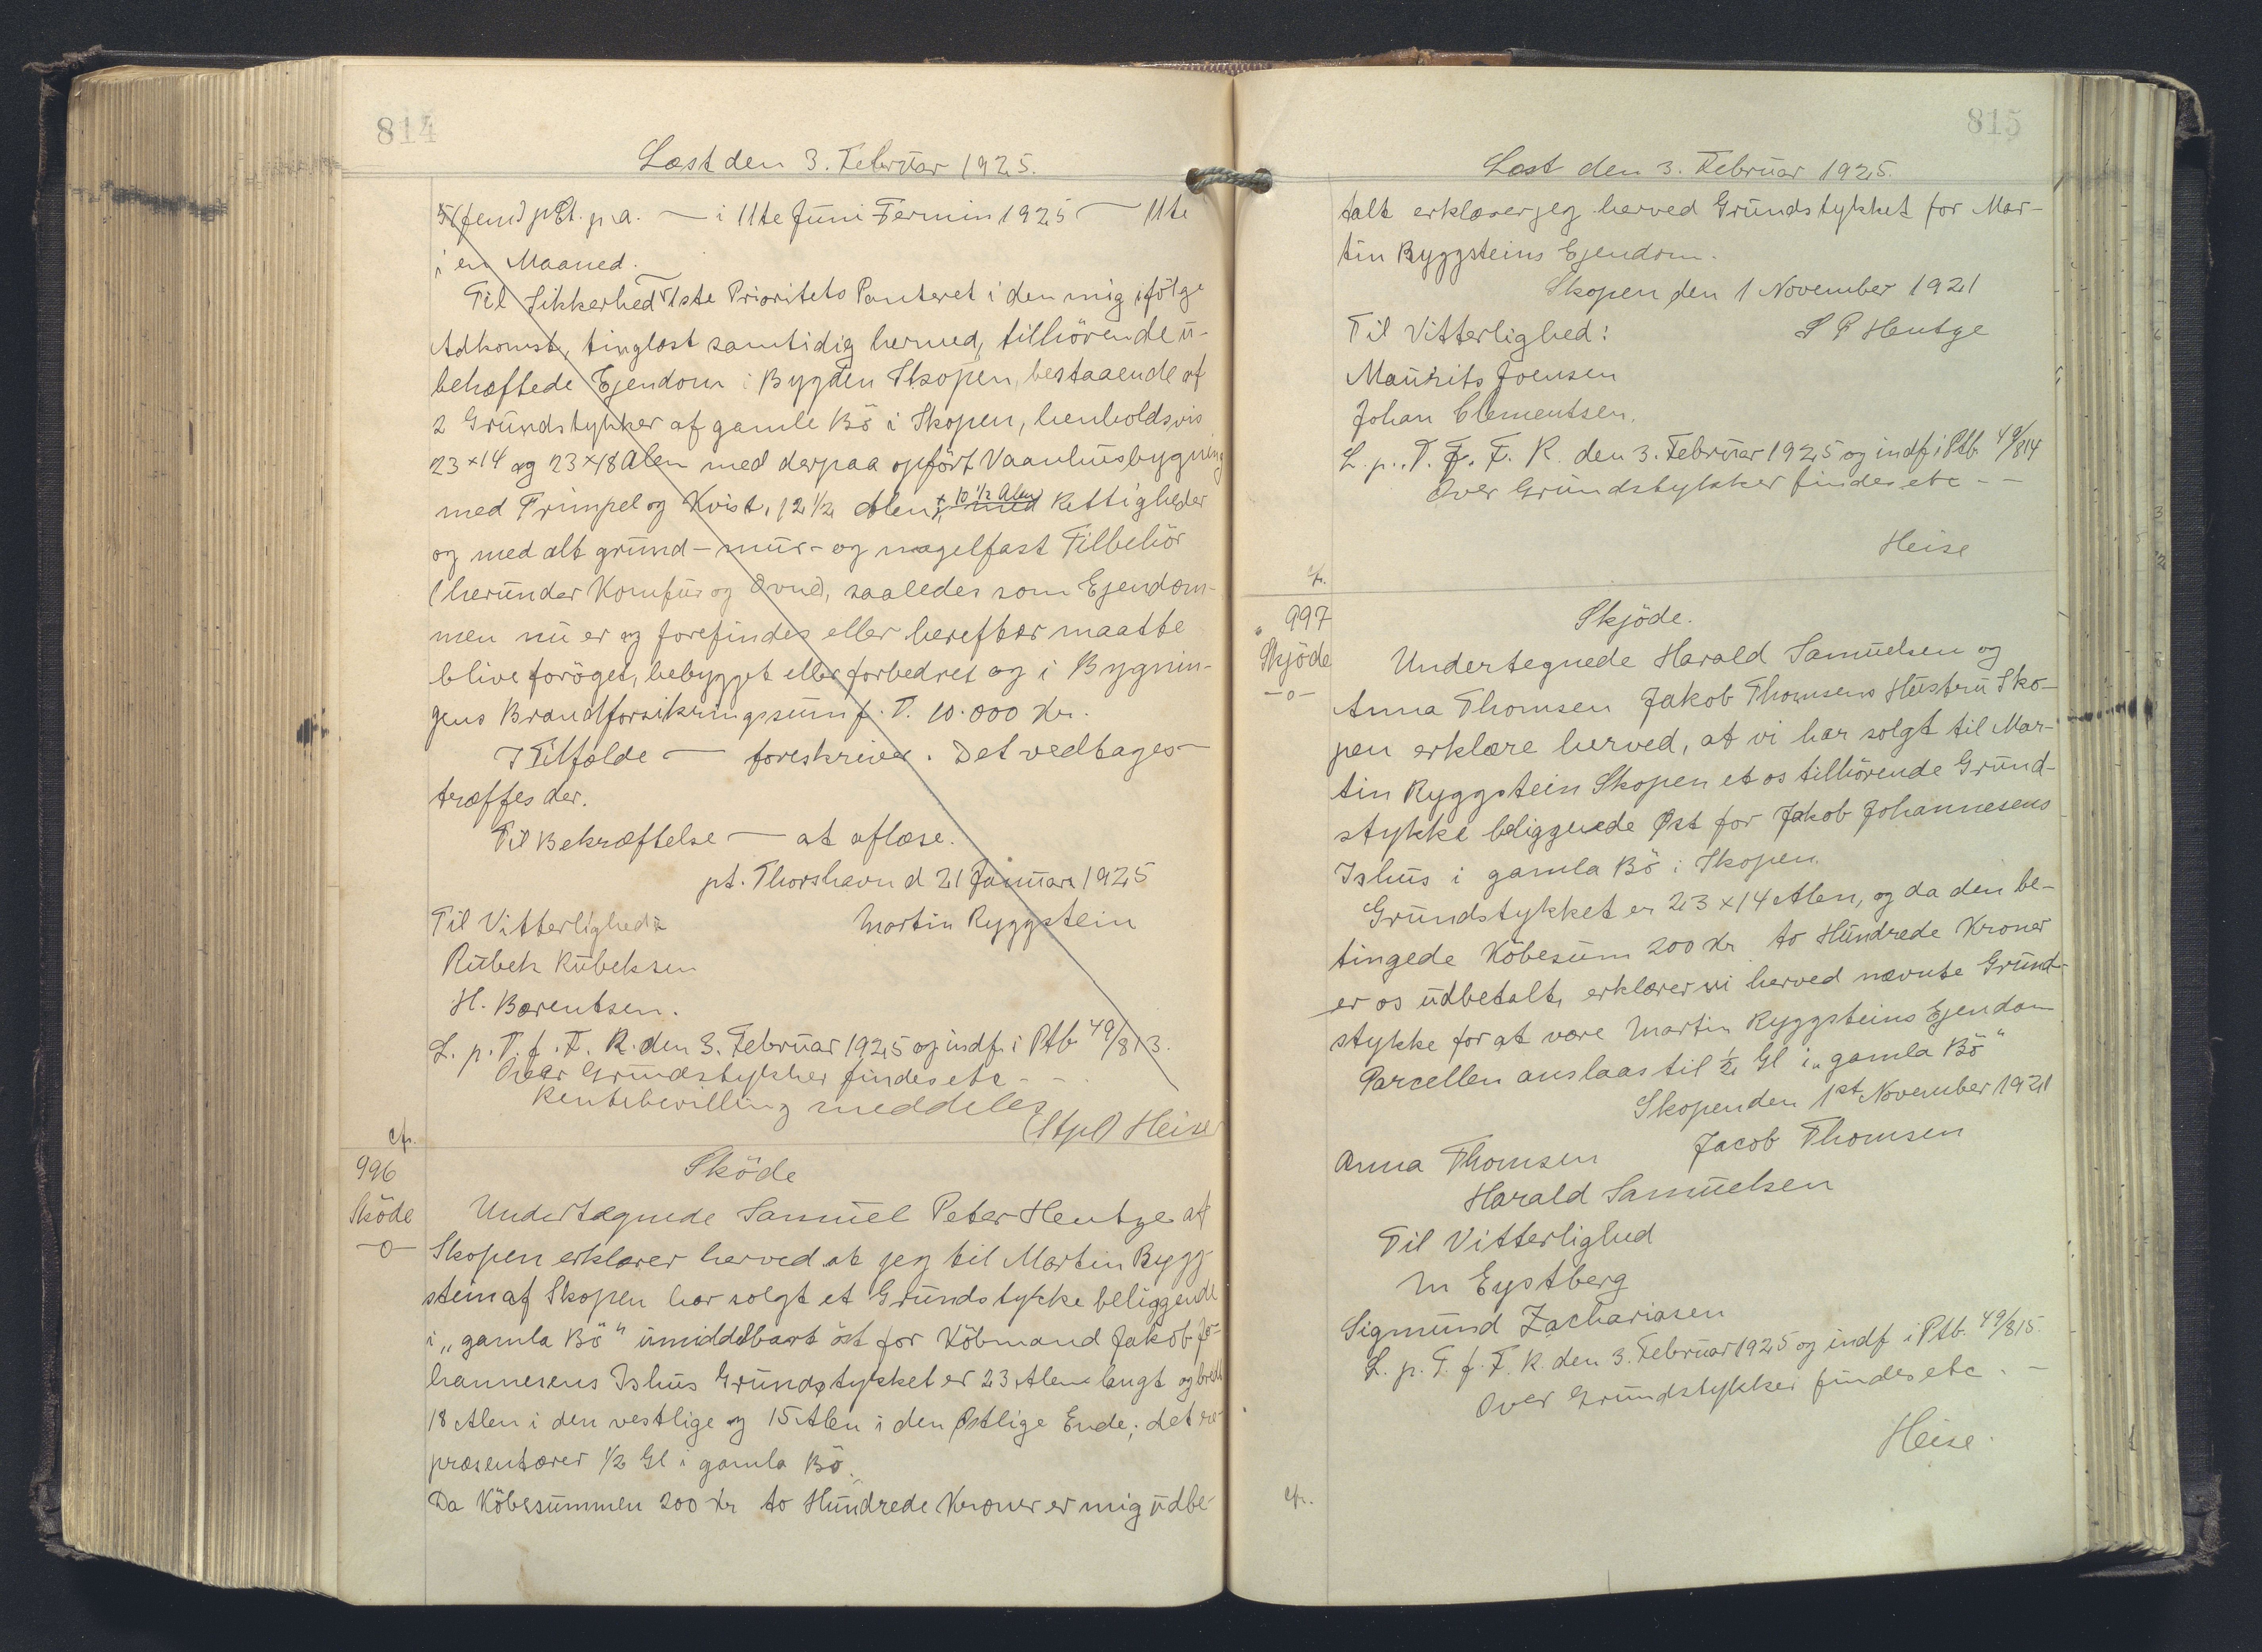 814
Læst den 3. Februar 1925.
5 (fem) pCt. p.a. — i 11te Juni Termin 1925 — 11te
i en Maaned.
Til Sikkerhed — 1ste Prioritets Panteret i den mig ifölge
Adkomst, tinglæst samtidig hermed, tilhörende u-
behæftede Ejendom i Bygden Skopen, bestaaende af
2 Grundstykker af gamle Bö i Skopen, henholdsvis
23 x 14 og 23 x 18 Alen med derpaa opfört Vaanhusbygning
med Trimpel og Kvist, 12 1/2 Alen x 10 1/2 Alen med Rettigheder
og med alt grund- mur- og nagelfast Tilbehör
(herunder Komfur og Ovne), saaledes som Ejendom-
men nu er og forefindes eller herefter maatte
blive foröget, bebygget eller forbedret og i Bygnin-
gens Brandforsikringssum f. T. 10.000 Kr.
I Tilfælde — foreskriver. Det vedtages —
træffes der.
Til Bekræftelse — at aflæse.
pt. Thorshavn d 21 Januar 1925
Til Vitterlighed: Martin Ryggstein
Rubek Rubeksen
H. Barentsen.
L. p. T. f. F. R. den 3. Februar 1925 og indf. i Ptb 49/813.
Over Grundstykker findes etc - -
Rentebevilling meddeles
(Stpl) Heise
cfr.
996
Sköde
-o-
Sköde
Undertegnede Samuel Peter Hentze af
Skopen erklærer herved at jeg til Martin Rygg-
stein af Skopen har solgt et Grundstykke beliggende
i „gamla Bö" umiddelbart öst for Köbmand Jakob Jo-
hannesens Ishus Grundstykket er 23 Alen langt og bredt
18 Alen i den vestlige og 15 Alen i den Østlige Ende; det re-
præsenterer 1/2 Gl i gamla Bö.
Da Köbesummen 200 Kr to Hundrede Kroner er mig udbe-
815
Læst den 3. Februar 1925.
talt erklærer jeg herved Grundstykket for Mar-
tin Ryggsteins Ejendom.
Skopen, den 1 November 1921
Til Vitterlighed: S P Hentze
Maurits Joensen
Johan Clementsen.
L. p. T. F. F. R. den 3. Februar 1925 og indf. i Ptb. 49/814
Over Grundstykker findes etc - -
Heise
cfr.
997
Skjöde
-o-
Skjöde.
Undertegnede Harald Samuelsen og
Anna Thomsen Jakob Thomsens Hustru Sko-
pen erklære herved, at vi har solgt til Mar-
tin Ryggstein Skopen et os tilhörende Grund-
stykke beliggende Øst for Jakob Johannesens
Ishus i gamla Bö i Skopen.
Grundstykket er 23 x 14 Alen, og da den be-
tingede Köbesum 200 Kr to Hundrede Kroner
er os udbetalt, erklærer vi herved nævnte Grund-
stykke for at være Martin Ryggsteins Ejendom
Parcellen anslaas til 1/2 Gl i „gamla Bö"
Skopen den 1st November 1921
Anna Thomsen Jacob Thomsen
Harald Samuelsen
Til Vitterlighed
M Eystberg
Sigmund Zachariasen
L. p. T. f. F. R. den 3. Februar 1925 og indf i Ptb. 49/815.
Over Grundstykker findes etc. -
Heise.
cfr.